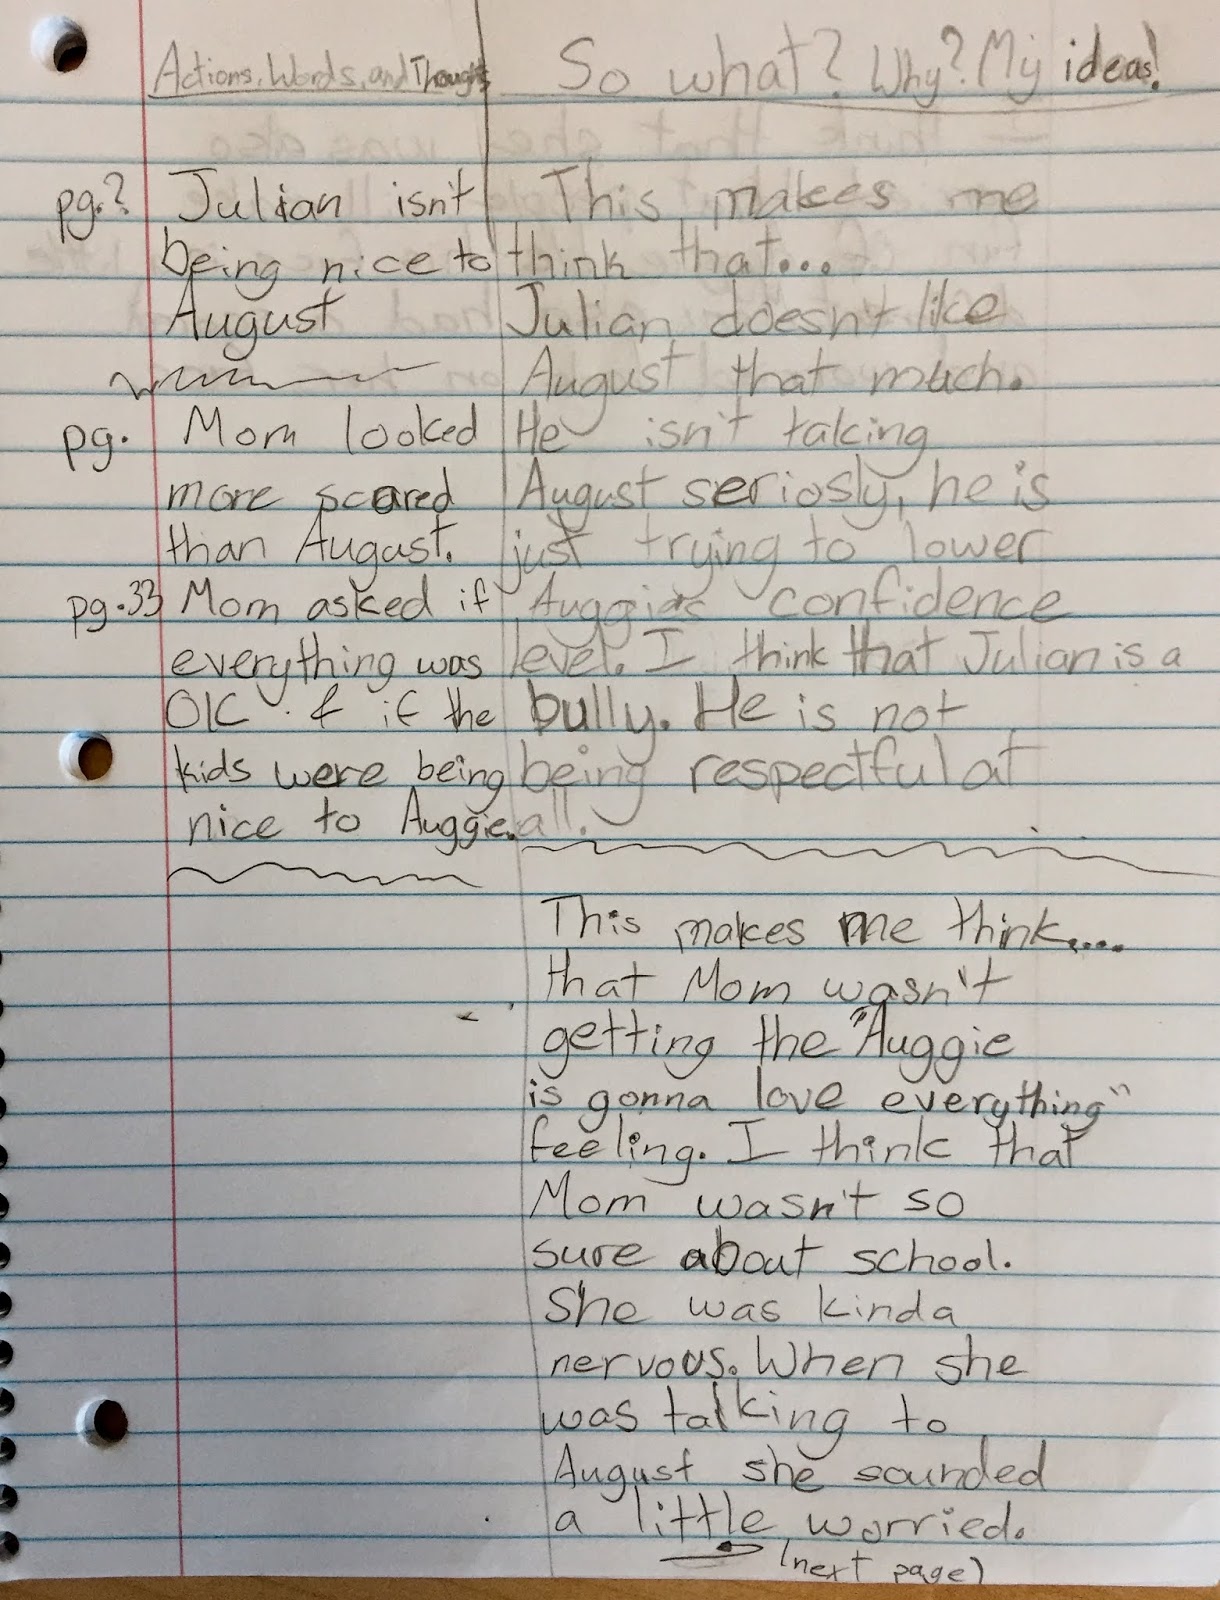 Actions, Words, and Thoughts
pg.? Julian isn't
being nice to
August
pg. Mom looked
more scared
than August.
pg.33 Mom asked if
everything was
OK & if the
kids were being
nice to Auggie.
So what? Why? My ideas!
This makes me
think that...
Julian doesn't like
August that much.
He isn't taking
August seriosly, he is
just trying to lower
Auggies confidence
level. I think that Julian is a
bully. He is not
being respectful at
all.
This makes me think....
that Mom wasn't
getting the "Auggie
is gonna love everything"
feeling. I think that
Mom wasn't so
sure about school.
She was kinda
nervous. When she
was talking to
August she sounded
a little worried.
(next page)